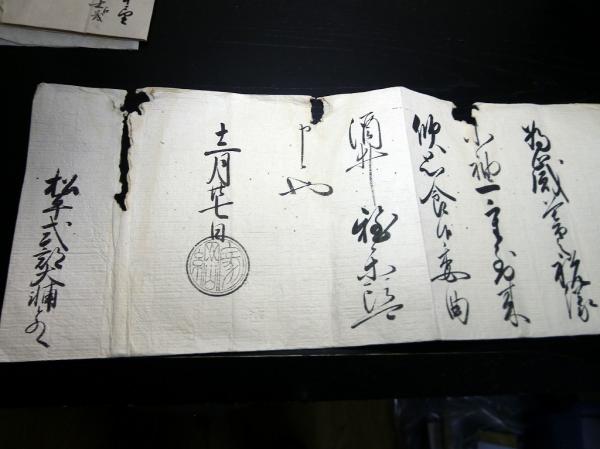 為歳暮祝儀
小袖一重到来
歓思食候委曲
酒井雅楽頭
可申也
十二月廿七日
松平式部大輔とのへ